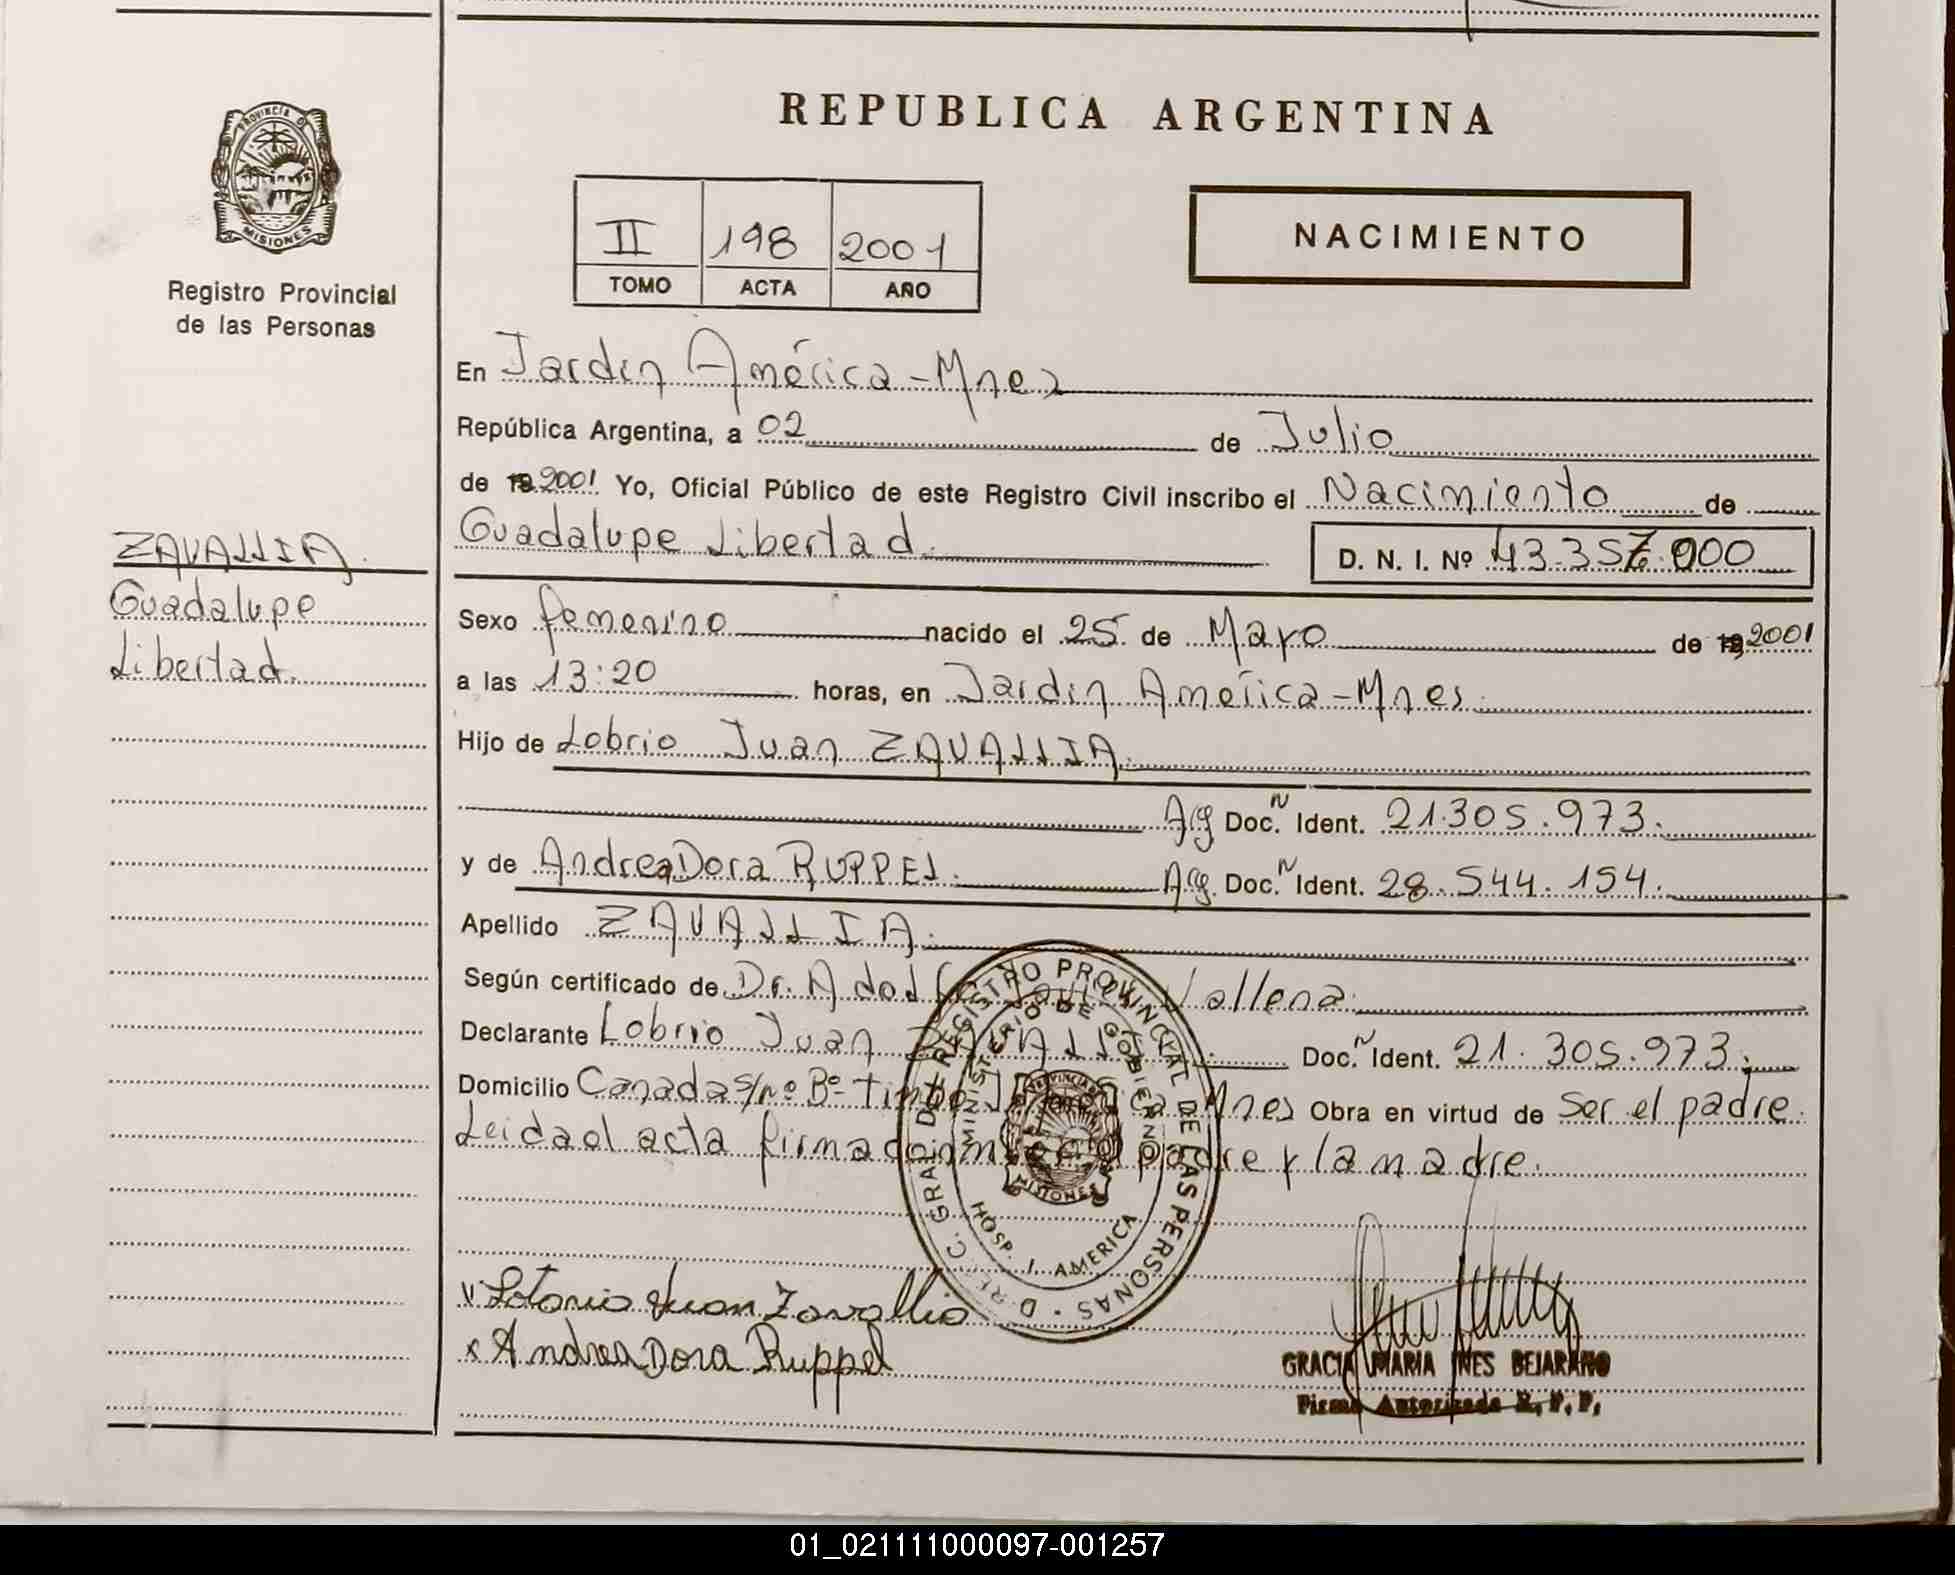 REPUBLICA ARGENTINA
PROVINCIA DE
MISIONES
Registro Provincial
de las Personas
II 198 2001
TOMO ACTA AÑO
NACIMIENTO
En Jardín América - Mnes
República Argentina, a 02 de Julio
de 19 2001 Yo, Oficial Público de este Registro Civil inscribo el Nacimiento de
Guadalupe Libertad.
D. N. I. Nº 43.357.000
ZAVALLIA.
Guadalupe
Libertad.
Sexo femenino nacido el 25 de Mayo de 19 2001
a las 13:20 horas, en Jardín América - Mnes.
Hijo de Lobrio Juan ZAVALLIA.
Arg Doc. N Ident. 21.305.973.
y de Andrea Dora RUPPEL. Arg. Doc. N Ident. 28.544.154.
Apellido ZAVALLIA.
Según certificado de Dr. Adolfo Vallena.
Declarante Lobrio Juan ZAVALLIA. Doc. N Ident. 21.305.973.
Domicilio Canada s/nº Bº Timbo J. América Mnes Obra en virtud de Ser el padre.
Leida el acta firma conmigo el padre y la madre.
REGISTRO PROVINCIAL DE LAS PERSONAS
MINISTERIO DE GOBIERNO
PROVINCIA DE
MISIONES
HOSP. J. AMERICA
Juan Zavallia
x Andrea Dora Ruppel
GRACIA MARIA INES BEJARANO
Firma Autorizada R. P. P.
01_021111000097-001257